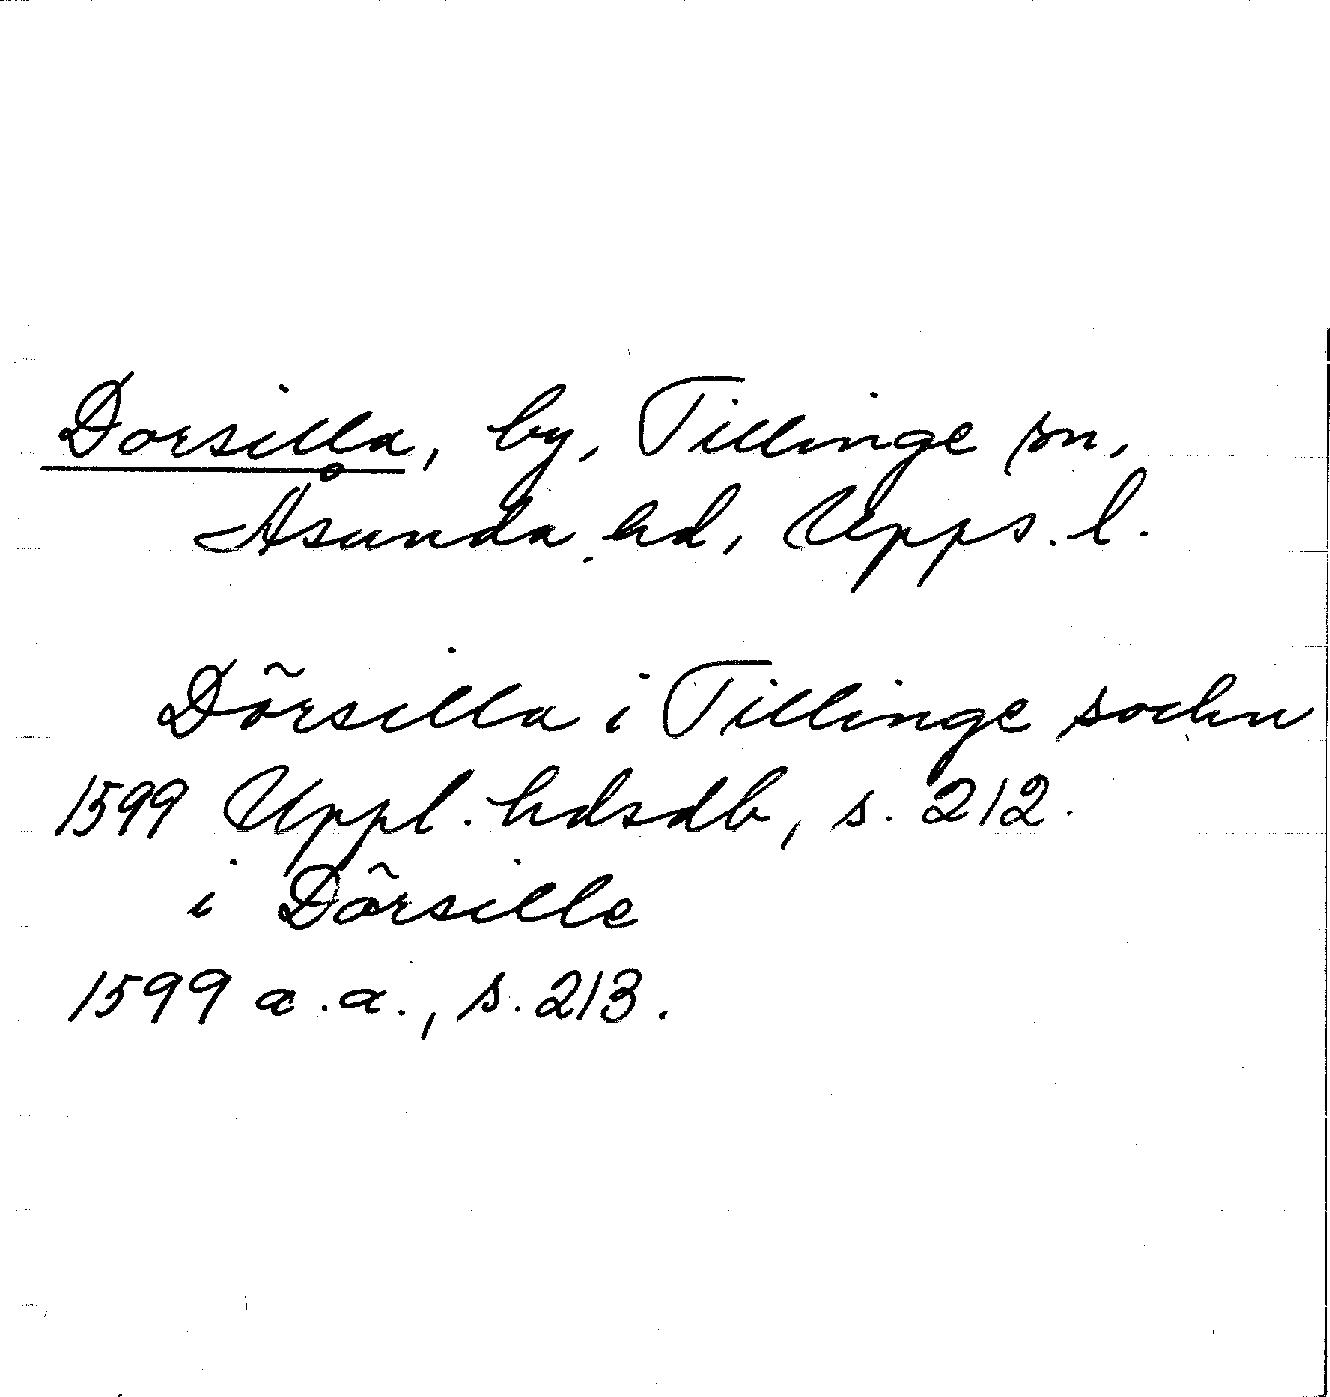 Dorsilla, by, Tillinge sn,
Åsunda hd, Upps. l.
Dõrsilla i Tillinge sochn
1599 Uppl. hdsdb, s. 212.
i Dõrsille
1599 a.a., s. 213.